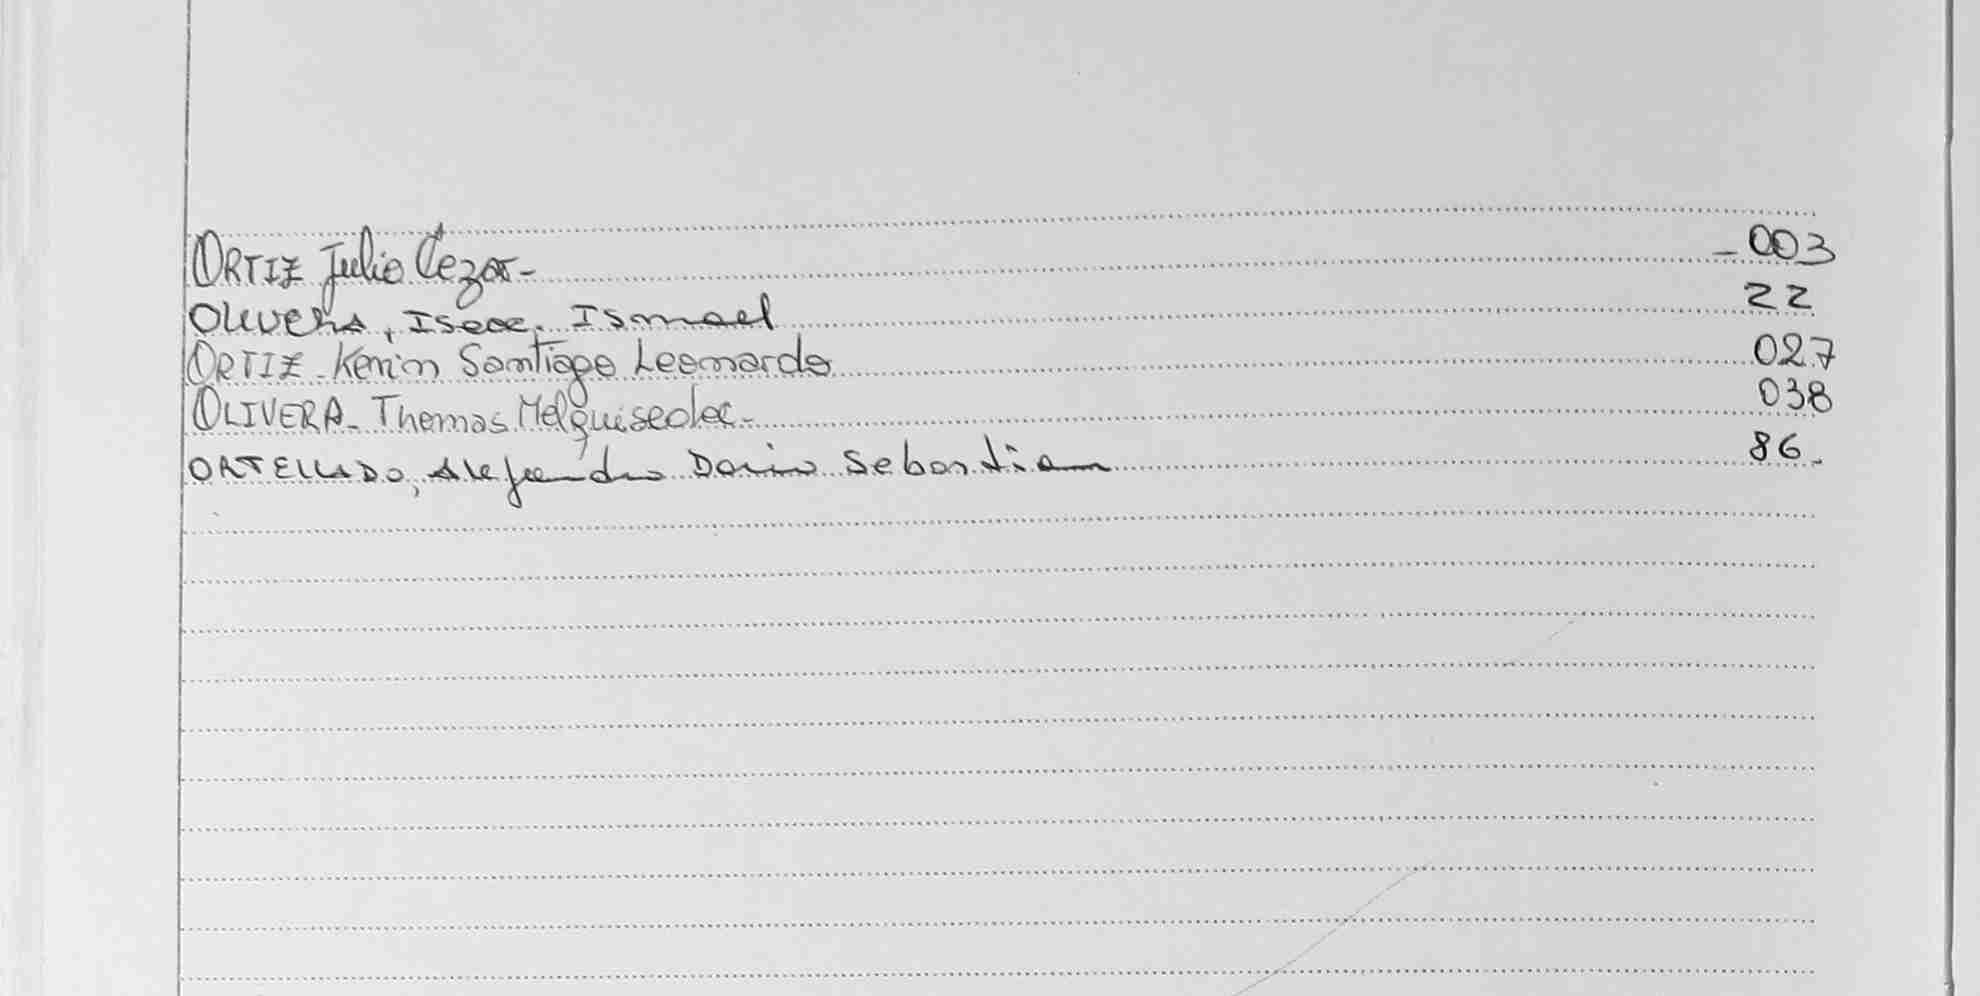 ORTIZ Julio Cezar- - 003
Olivera, Isaac. Ismael 22
ORTIZ - Kevin Santiago Leonardo 027
OLIVERA - Thomas Melquisedec - 038
ORTELLADO, Alejandro Dario Sebastian 86.